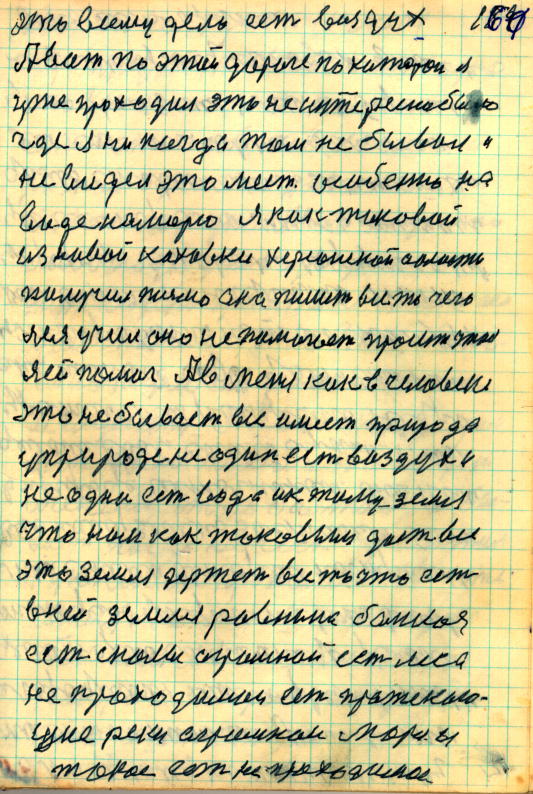 это всему делу ест воздух
А вот по этой дороге по которой я
уже проходил это не интересно было
где я никогда там не бывал и
не видел это мест. особено на
виде на марю Я как таковой
из новой каховки херсонской области
получилписмо она пишет все то чего
я ея учил оно не помогает просит чтоб
я ей помог А в меня как в человеке
это не бывает все имеет природа
у природе не один ест воздух и
не одна ест вода и к тому земля
что нам как таковым дает все
это земля держет все то что ест
в ней земля равнына болшая
ест скалы огромной ест леса
не проходимои ест протекаю-
щие реки огромнои Моря и
такое ест не проходимое